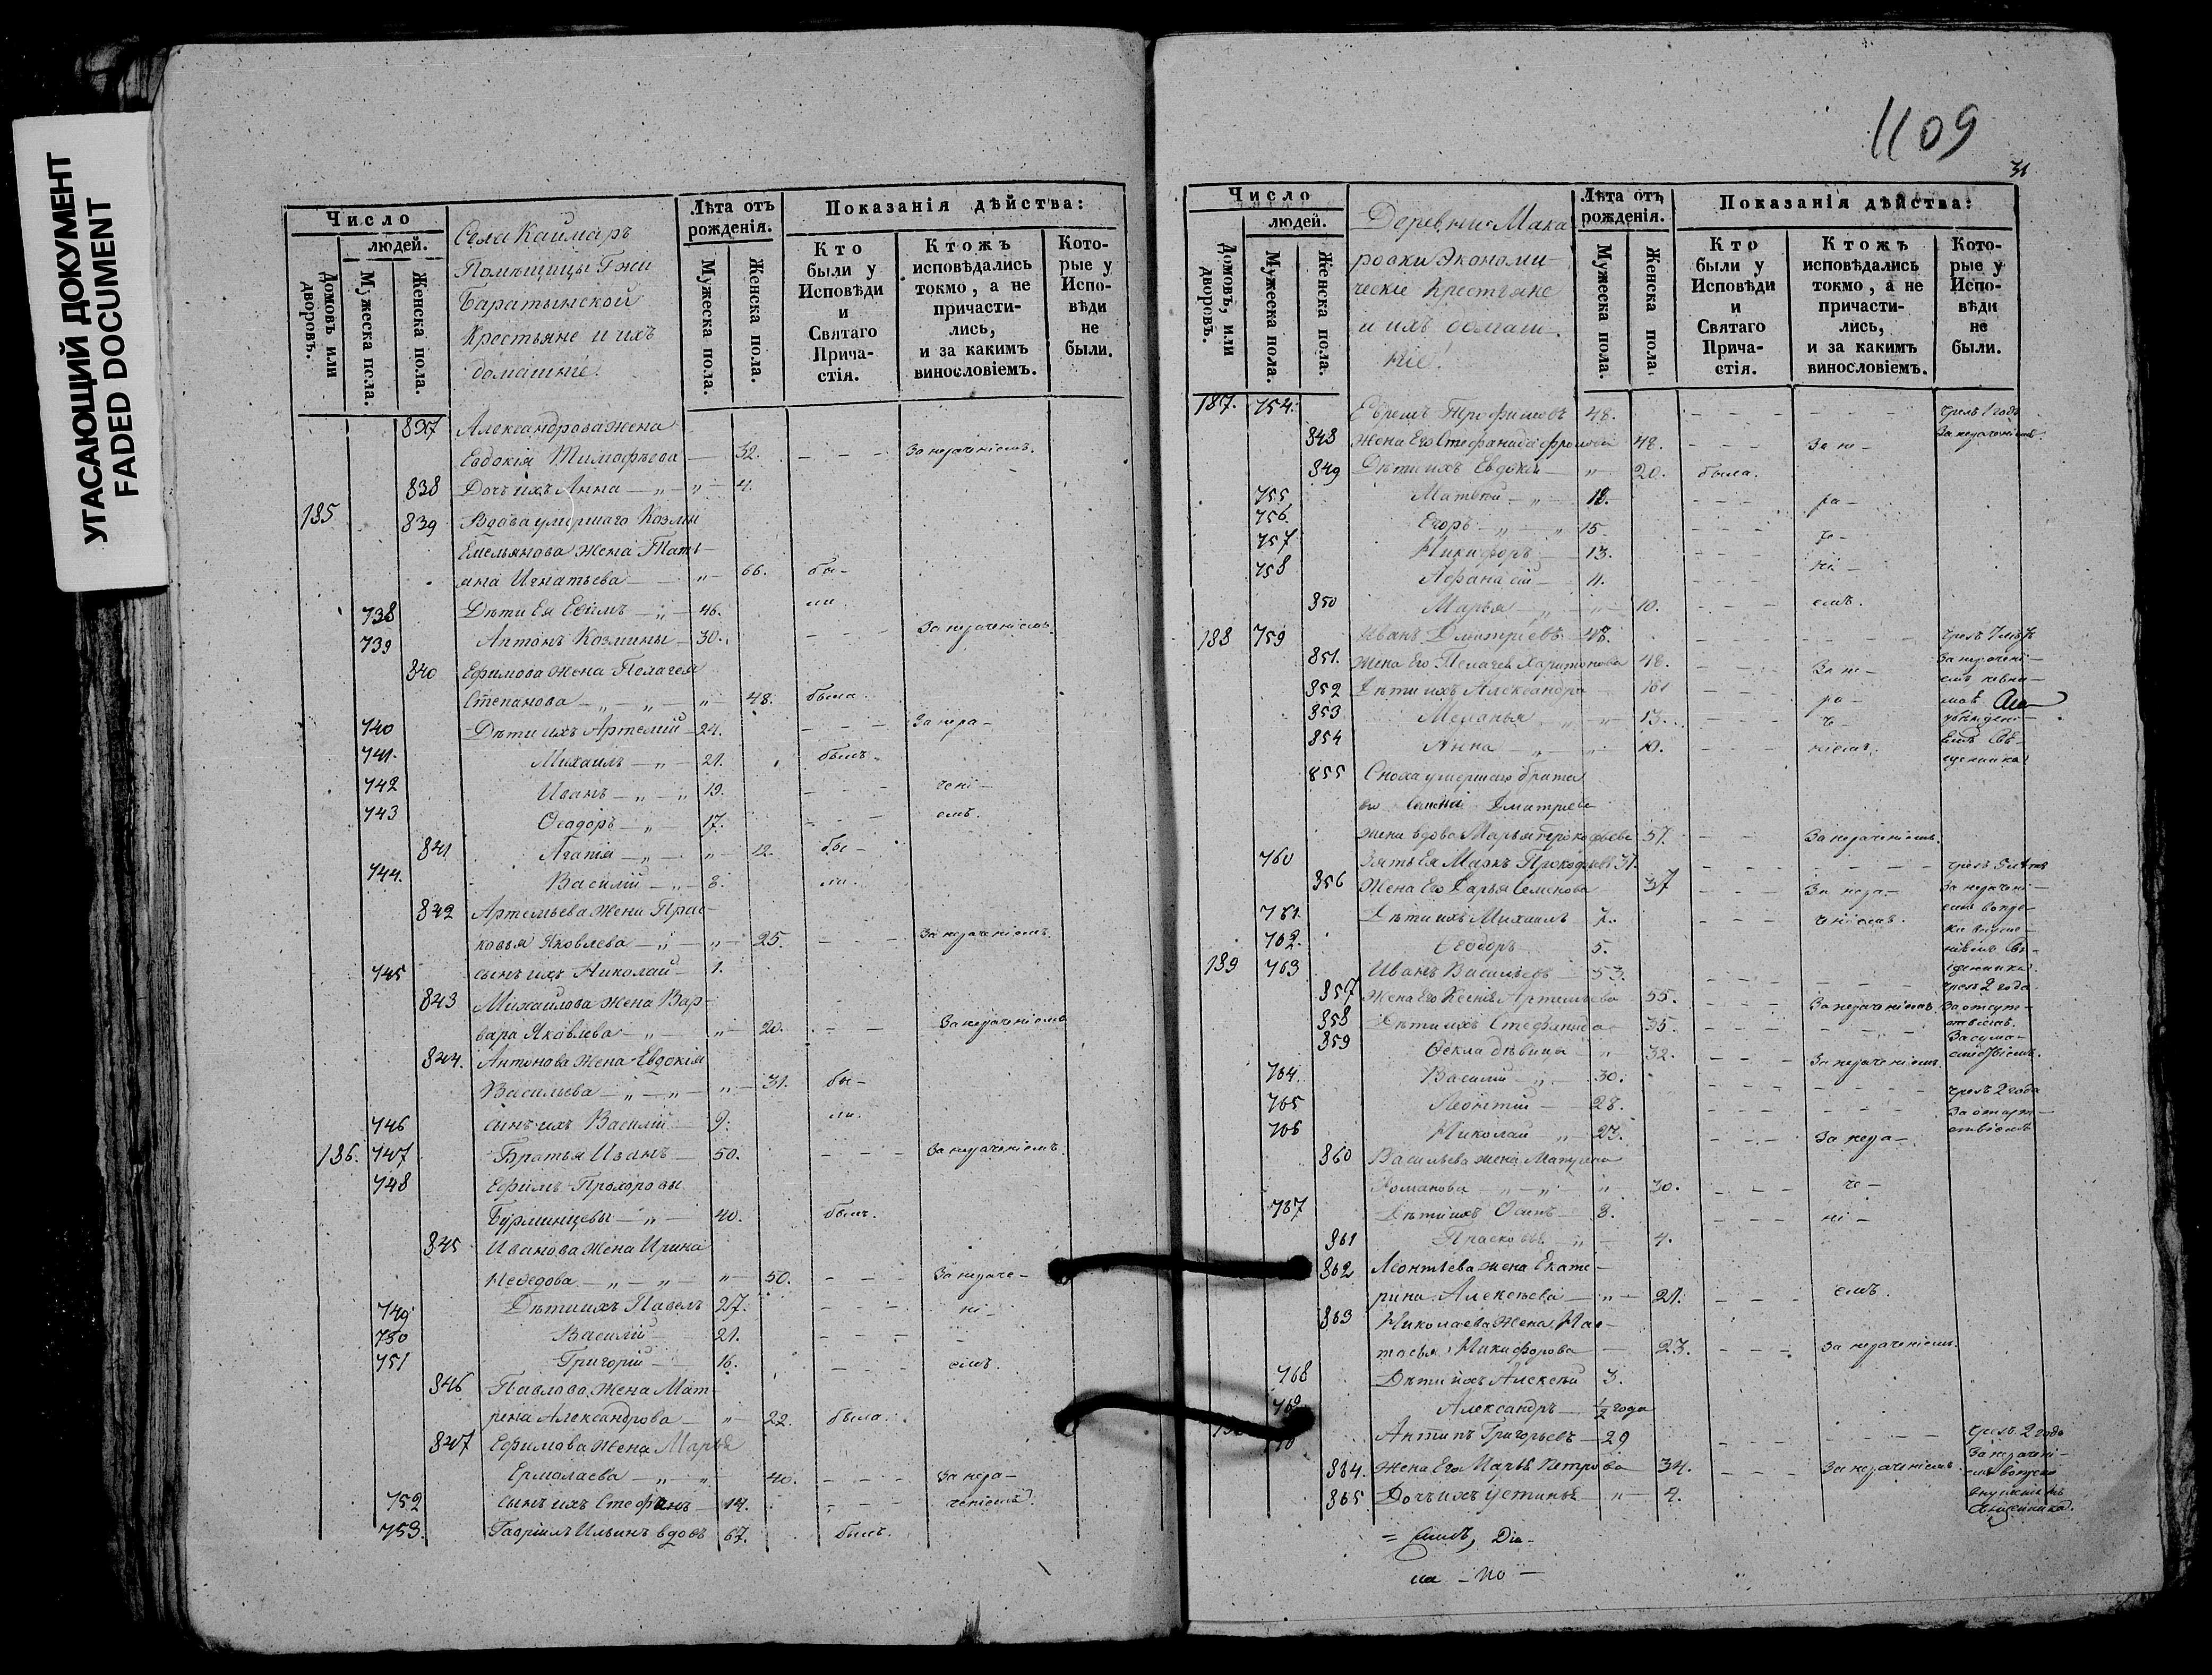 УГАСАЮЩИЙ ДОКУМЕНТ
FADED DOCUMENT
Число
людей.
Домовъ или дворовъ.
Мужеска пола.
Женска пола.
Села Каймаръ
Помѣщицы Гжи
Баратынской
Крестьяне и ихъ
домашніе.
Лѣта отъ рожденія.
Мужеска пола.
Женска пола.
Показанія дѣйства:
Кто были у Исповѣди и Святаго Прича-стія.
Ктожъ исповѣдались токмо, а не причасти-лись, и за какимъ винословіемъ.
Кото-рые у Испо-вѣди не были.
837 Александрова жена
Евдокія Тимофѣева — 32. - - - За нераченіемъ.
838 Дочь ихъ Анна — „ — „ — 4.
185 839 Вдова умершаго Козмы
Емельянова жена Тать-
яна Игнатьева — „ — 66. бы-
738 Дѣти Ея Ефимъ — „ — 46. ли.
739 Антонъ Козмины — 30. - - - За нераченіемъ.
840 Ефимова жена Пелагея
Степанова — „ — „ — „ — 48. была.
740 Дѣти ихъ Артемій — 24. - - - За нера-
741. Михаилъ — „ — 21. былъ.
742 Иванъ — „ — „ 19. - - - чені-
743 Ѳеодоръ — „ — 17. - - - емъ.
841 Агапія — „ — „ — 12. бы-
744. Василій — „ — 8. ли.
842 Артемьева жена Прас-
ковья Яковлева — „ — „ — 25. - - - За нераченіемъ.
745 сынъ ихъ Николай — 1.
843 Михайлова жена Вар-
вара Яковлева — „ — „ — 20. - - - За нераченіемъ
844. Антонова жена Евдокія
Васильева — „ — „ — „ — 31. бы-
746 сынъ ихъ Василій — 9. ли.
186. 747 Братья Иванъ — 50. - - - За нераченіемъ.
748 Ефимъ Прохоровы
Бурминцевы — „ — 40. былъ.
845 Иванова жена Ирина
Нефедова — „ — „ — „ — 50. - - - За нераче-
749 Дѣти ихъ Павелъ 27. - - - ні-
750 Василій — 21. - - - -
751 Григорій — 16. - - - емъ.
846 Павлова жена Мат-
рена Александрова — „ — 22. была.
847 Ефимова жена Марья
Ермолаева — „ — „ — 40. - - - За нера-
752 сынъ ихъ Стефанъ — 14. - - - ченіемъ.
753. Гавріилъ Ильинъ вдовъ 67. былъ.
1109
31
Число
людей.
Домовъ, или дворовъ.
Мужеска пола.
Женска пола.
Деревни Мака
ровки Экономи-
ческіе Крестьяне
и ихъ домаш-
ніе.
Лѣта отъ рожденія.
Мужеска пола.
Женска пола.
Показанія дѣйства:
Кто были у Исповѣди и Святаго Прича-стія.
Ктожъ исповѣдались токмо, а не причасти-лись, и за какимъ винословіемъ.
Кото-рые у Испо-вѣди не были.
187. 754. Ефремъ Трофимовъ 48. - - - - - - чрезъ 1 годъ
За нераченіемъ.
848 Жена Его Стефанида Фролова 48. - - - За не-
849 Дѣти ихъ Евдокія — „ — 20. была.
755 Матвей — „ — 18. - - - ра-
756. Егоръ — „ — „ 15 - - - че-
757 Никифоръ — 13. - - - ні-
758 Афанасій — 4.
850 Марья — „ — „ — 10. - - - емъ.
188 759 Иванъ Дмитріевъ 47. - - - - - - чрезъ 7 лѣтъ
851. Жена Его Пелагея Харитонова 48. - - - За не- За нерачені-
852 Дѣти ихъ Александра 16. - - - ра-
853 Меланья — „ — „ — 13. - - - че-
854 Анна — „ — „ — 10. - - - ніемъ.
855 Сноха умершаго брата
жена вдова Марья Прокофьева 57. - - - За нераченіемъ.
760 Зять Ея Маркъ Прокофьевъ 31. - - - - - - чрезъ 5 лѣтъ
856 Жена Его Дарья Семенова 37 - - - За нера- За нерачені-
761. Дѣти ихъ Михаилъ 7. - - - ченіемъ.
762. Ѳеодоръ 5.
189 763 Иванъ Васильевъ — 53. - - - - - - чрезъ 2 года
857 Жена Его Ксенія Артемьева 55. - - - За нераченіемъ. За отсут-
858 Дѣти ихъ Стефанида 35. - - - - - - ствіемъ.
859 Ѳекла дѣвица — „ 32. - - - За нераченіемъ.
За сума-
сшествіемъ.
764. Василій — „ — 30. - - - - - - чрезъ 2 года
765 Леонтій — 28. - - - - - - За отсут-
766 Николай — „ — 23. - - - За нера- ствіемъ
860 Васильева жена Матрена
Романова — „ — „ — „ — 30. - - - че-
767 Дѣти ихъ Осипъ — 8. - - - ні-
861 Прасковья — „ — 4.
862 Леонтьева жена Екате-
рина Алексѣева — „ — 21. - - - емъ.
863 Николаева жена Нас-
тасья Никифорова — 23. - - - За нераченіемъ.
768 Дѣти ихъ Алексѣй 3.
769 Александръ — ½ года
Антипъ Григорьевъ — 29 - - - - - - чрезъ 2 года
864. Жена Его Марья Петрова 34. - - - За нераченіемъ За нерачені-
865 Дочь ихъ Устинья — „ — 4.
священника.